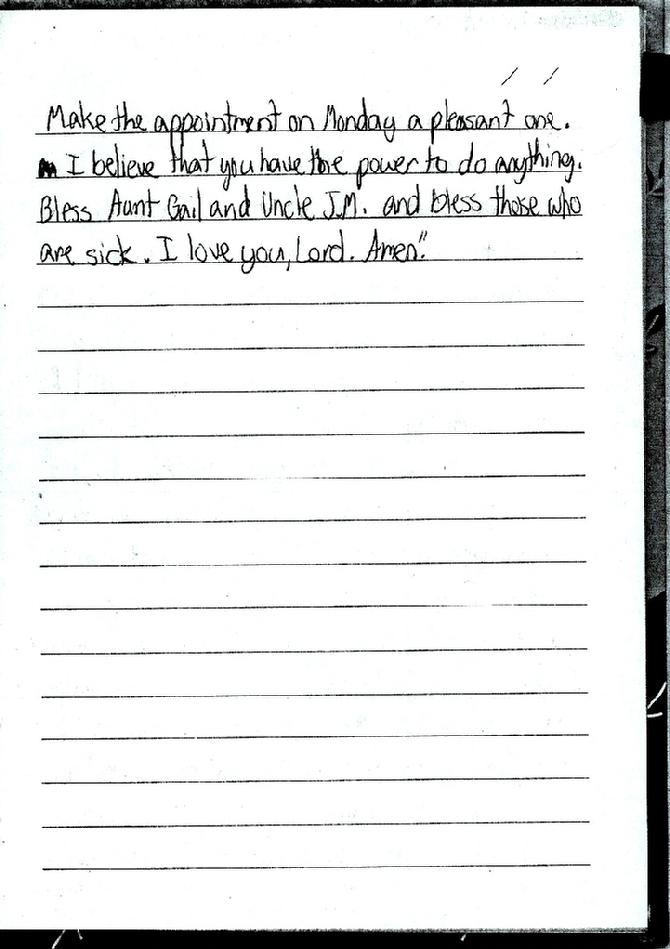 Make the appointment on Monday a pleasant one.
I believe that you have the power to do anything.
Bless Aunt Gail and Uncle J.M. and bless those who
are sick. I love you, Lord. Amen."